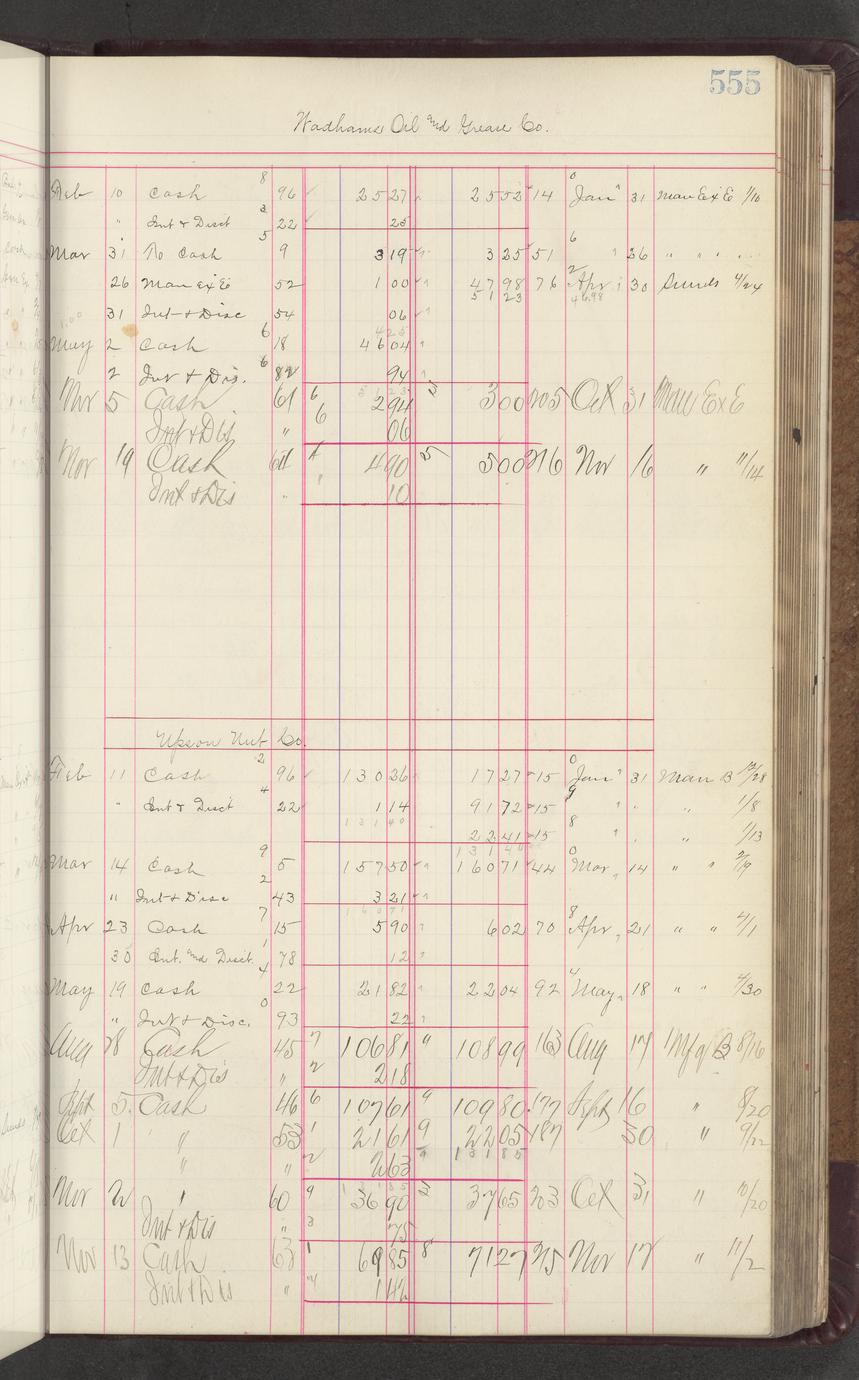 555
Wadhams Oil and Grease Co.
Feb 10 Cash 8 96 25 27 25 52 14 Jan 31 Man Ex E 1/10
" Int & Disct 3 22 25
Mar 31 To Cash 5 9 3 19 3 25 51 6 " 26 " " "
26 Man Ex E 52 1 00 47 98 76 2 Apr 30 Sunds 4/24
51 23 46.98
31 Int & Disc 54 06
4 25
May 2 Cash 6 18 46 04
2 Int & Dis. 6 82 94
51 23
Nov 5 Cash 61 6 2 94 3 00 205 Oct 31 Man Ex E
Int & Dis " 6 06
Nov 19 Cash 64 4 90 5 5 00 216 Nov 16 " 11/14
Int & Dis " " 10
Upson Nut Co.
Feb 11 Cash 2 96 130 26 17 27 15 0 Jan 31 Man B 12/28
" Int & Disct 4 22 1 14 91 72 15 9 " " " 1/8
131 40 22 41 15 8 " " " 1/13
131 40
Mar 14 Cash 9 5 157 50 160 71 44 0 Mar 14 " " 2/9
" Int & Disc 2 43 3 21
160 71
Apr 23 Cash 7 15 5 90 6 02 70 8 Apr 21 " " 4/1
30 Int. and Disct. 1 78 12
May 19 Cash 4 22 21 82 22 04 92 4 May 18 " " 4/30
" Int & Disc. 0 93 22
Aug 28 Cash 45 7 106 81 " 108 99 163 Aug 17 Mfg B 8/16
Int & Dis " 2 2 18
Sept 5 Cash 46 6 107 61 9 109 80 177 Sept 16 " 8/20
Oct 1 " 53 1 21 61 9 22 05 187 30 " 9/22
" " 2 2 63 131 85
131 85
Nov 2 " 60 9 36 90 5 37 65 203 Oct 31 " 10/20
Int & Dis " 3 75
Nov 13 Cash 63 1 69 85 8 71 27 215 Nov 17 " 11/2
Int & Dis " 1 42